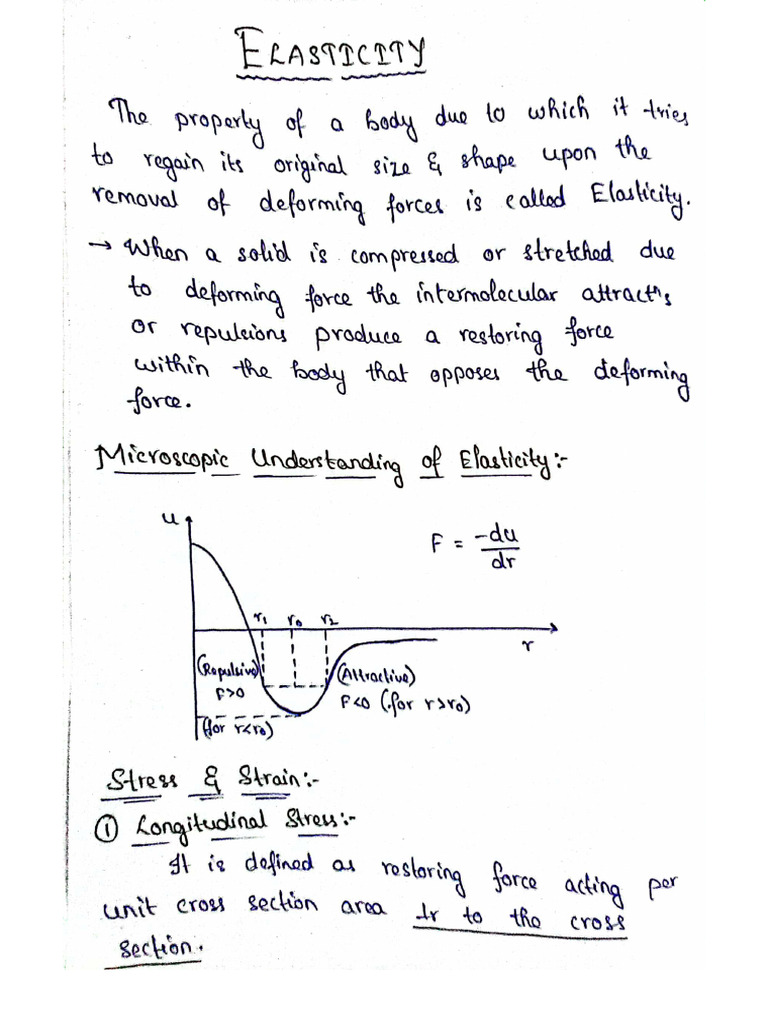 ELASTICITY
The property of a body due to which it tries
to regain its original size & shape upon the
removal of deforming forces is called Elasticity.
→ When a solid is compressed or stretched due
to deforming force the intermolecular attractn's
or repulsions produce a restoring force
within the body that opposes the deforming
force.
Microscopic Understanding of Elasticity:-
u
F = -du/dr
r1 r0 r2
r
(Repulsive)
F>0
(for r<r0)
(Attractive)
F<0 (for r>r0)
Stress & Strain:-
① Longitudinal Stress:-
It is defined as restoring force acting per
unit cross section area ⊥r to the cross
section.